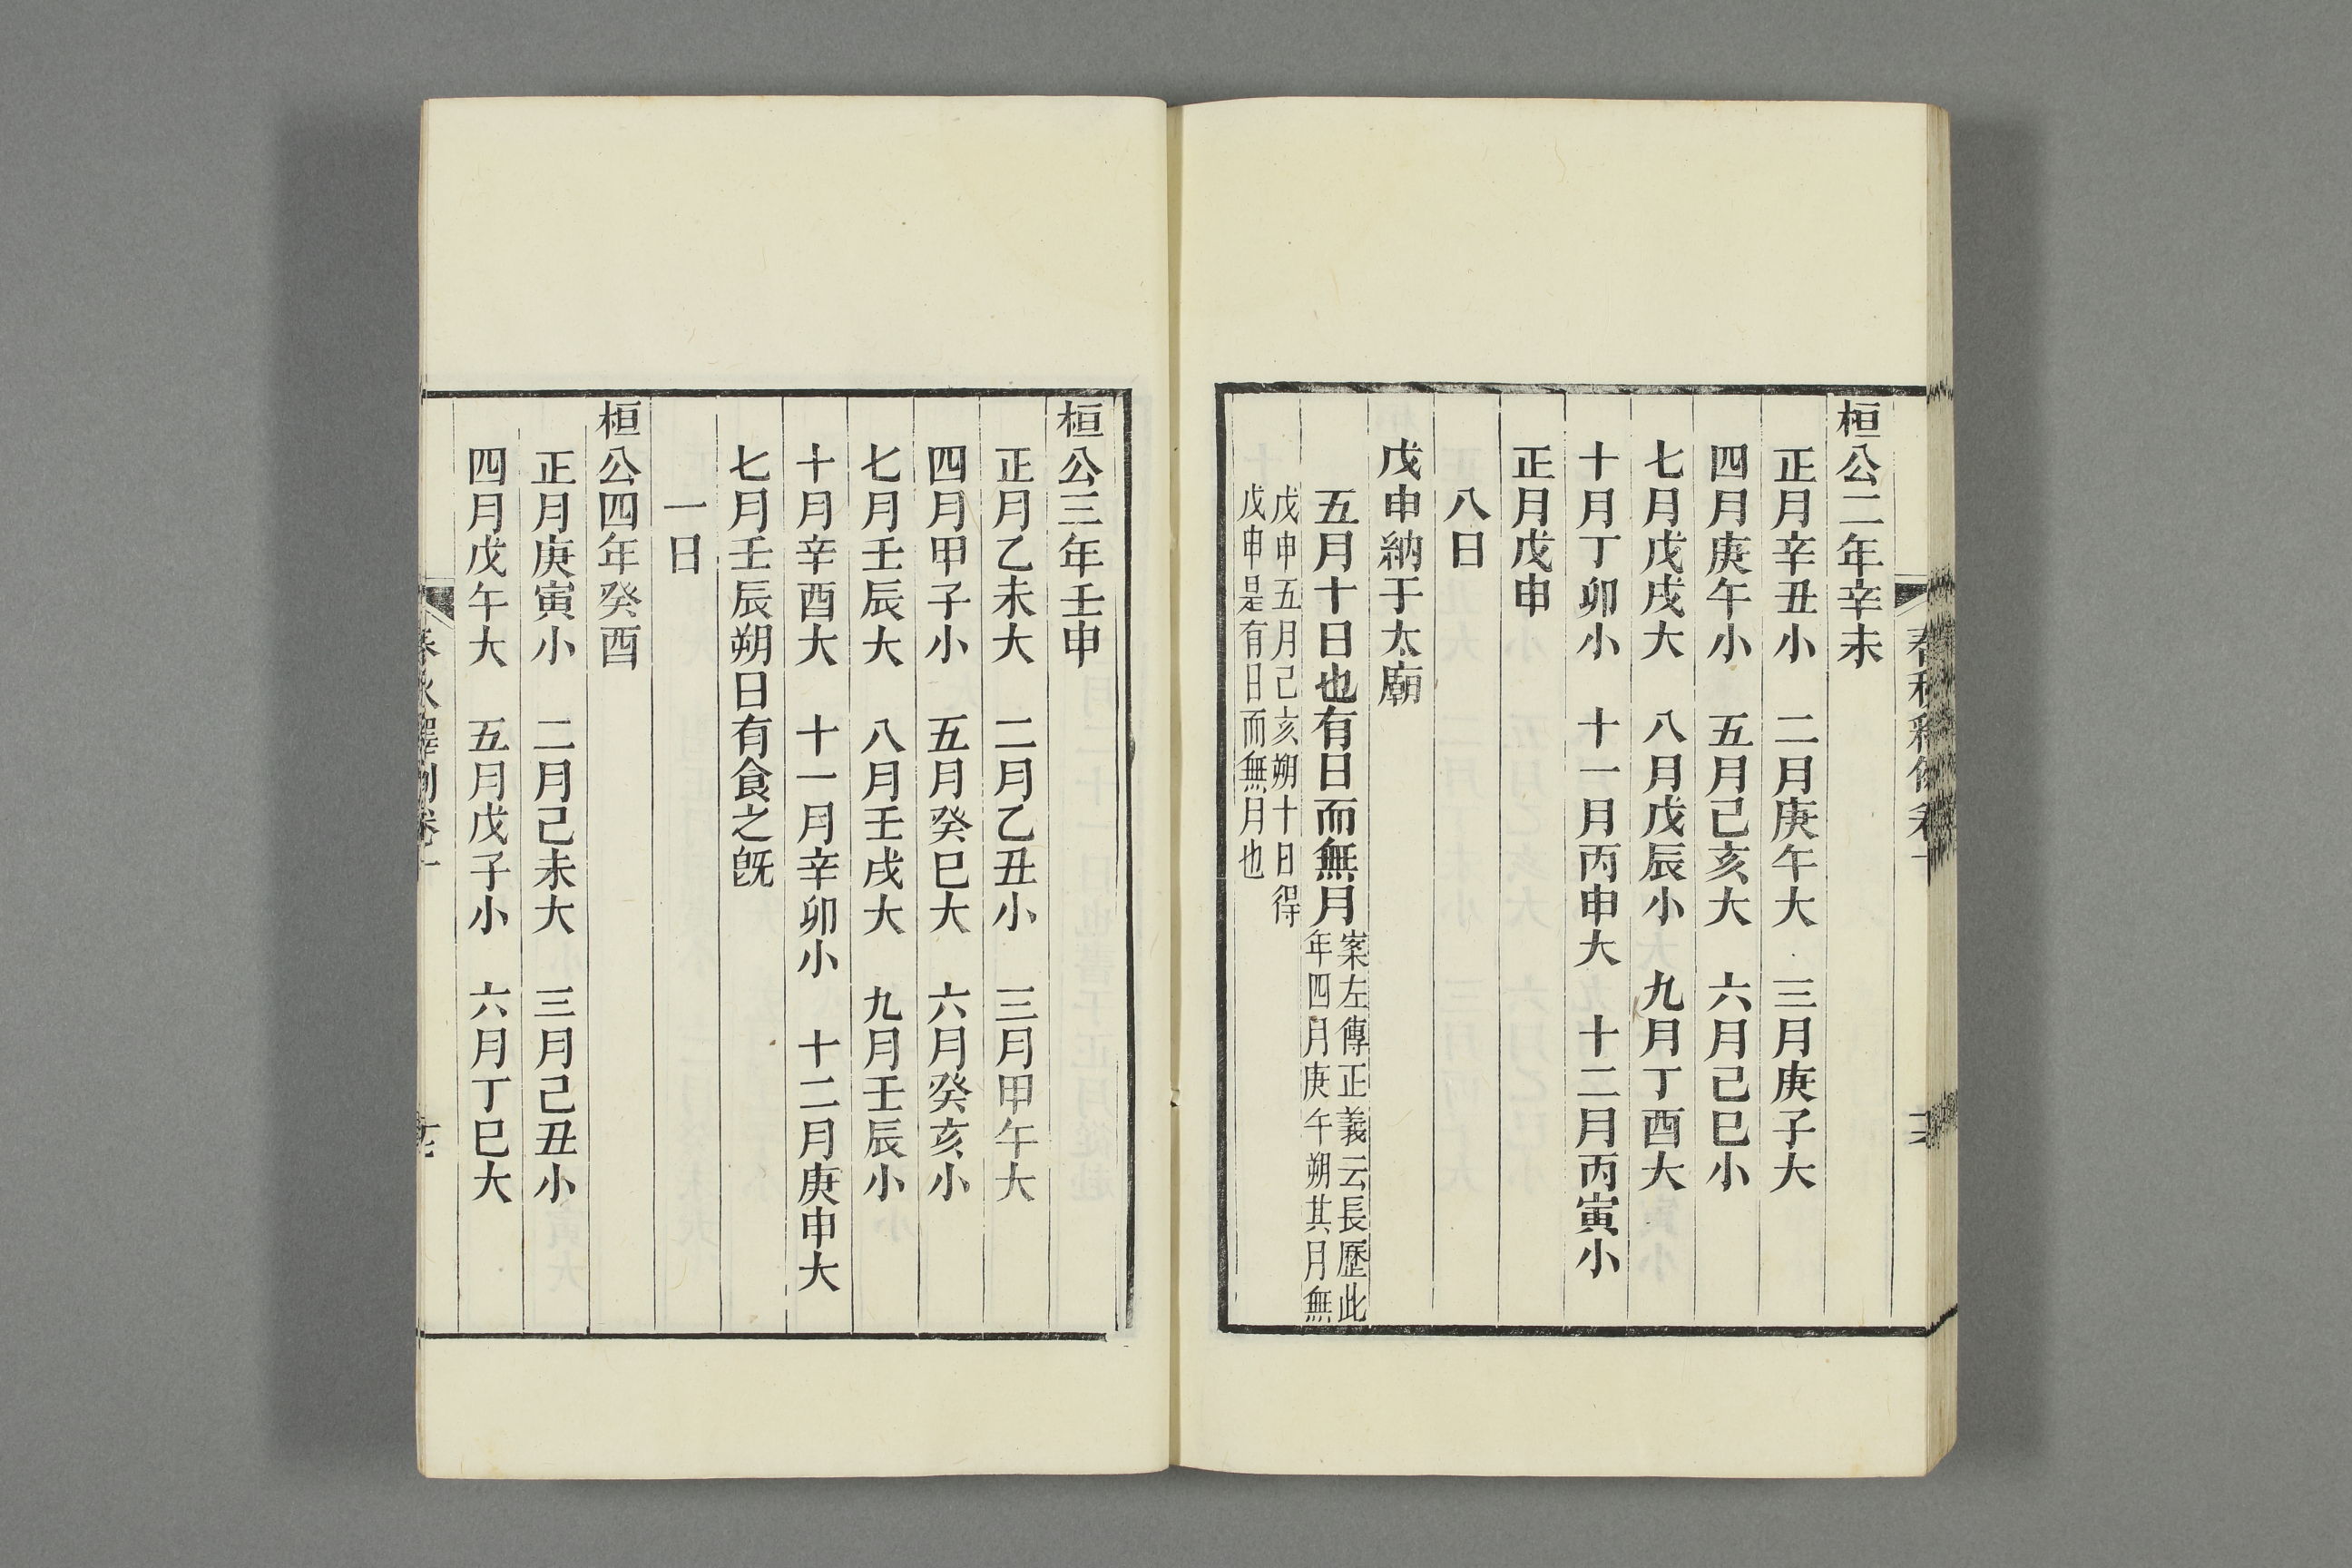 桓公二年辛未
正月辛丑小　二月庚午大　三月庚子大
四月庚午小　五月己亥大　六月己巳小
七月戊戌大　八月戊辰小　九月丁酉大
十月丁卯小　十一月丙申大　十二月丙寅小
正月戊申
八日
戊申納于太廟
五月十日也有日而無月案左傳正義云長歷此
年四月庚午朔其月無
戊申五月己亥朔十日得
戊申是有日而無月也
桓公三年壬申
正月乙未大　二月乙丑小　三月甲午大
四月甲子小　五月癸巳大　六月癸亥小
七月壬辰大　八月壬戌大　九月壬辰小
十月辛酉大　十一月辛卯小　十二月庚申大
七月壬辰朔日有食之旣
一日
桓公四年癸酉
正月庚寅小　二月己未大　三月己丑小
四月戊午大　五月戊子小　六月丁巳大
春秋釋例卷十